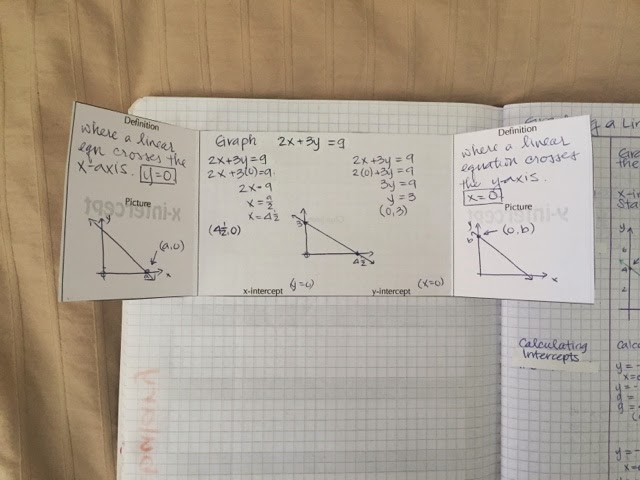 Definition
where a linear
eqn crosses the
x-axis. y=0
Picture
y
(a,0)
a
x
Graph 2x+3y=9
2x+3y=9
2x+3(0)=9
2x=9
x=9/2
x=4½
(4½,0)
2x+3y=9
2(0)+3y=9
3y=9
y=3
(0,3)
3
4½
x-intercept (y=0)
y-intercept (x=0)
Definition
where a linear
equation crosses
the y-axis.
x=0
Picture
y
b
(0,b)
x
x-intercept
y-intercept
Calculating
Intercepts